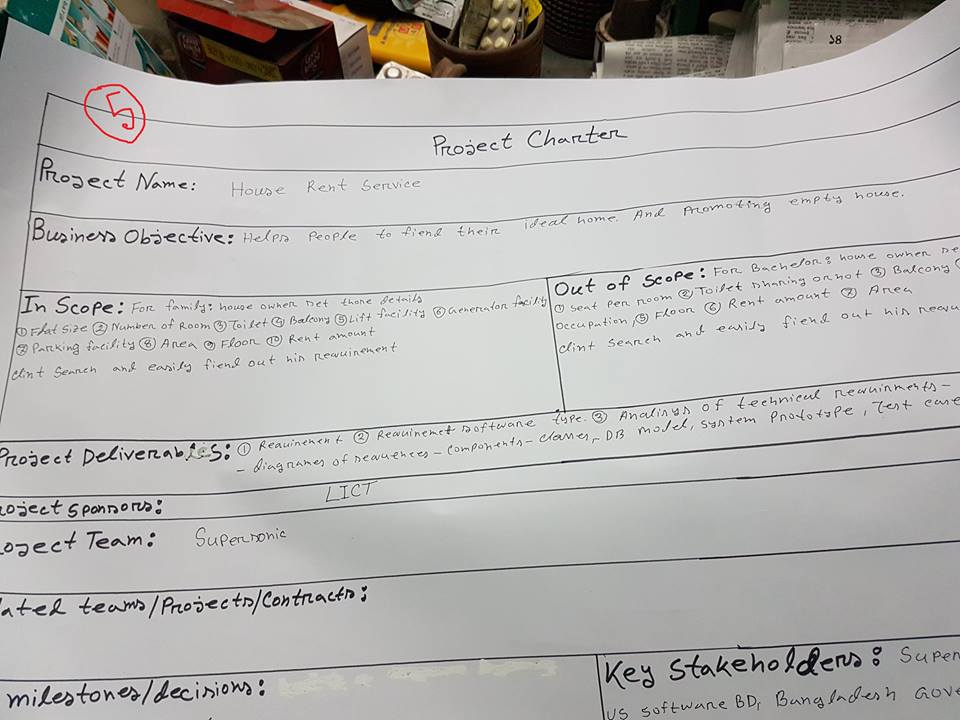 5
Project Charter
Project Name: House Rent Service
Business Objective: Helps People to fiend their ideal home. And Promoting empty house.
In Scope: For family: house owner set those details
① Flat Size ② Number of Room ③ Toilet ④ Balcony ⑤ Lift facility ⑥ Generator facility
⑦ Parking facility ⑧ Area ⑨ Floor ⑩ Rent amount
clint Search and easily fiend out his requirement
Out of Scope: For Bachelor: house owner se
① Seat Per room ② Toilet sharing or not ③ Balcony
Occupation, ⑤ Floor ⑥ Rent amount ⑦ Area
clint Search and easily fiend out his requ
Project Deliverables: ① Requirement ② Requiremet software type. ③ Analisys of technical requirments -
- diagrames of sequences - components - classes, - DB model, system Prototype, Test case
roject Sponsors: LICT
roject Team: Supersonic
lated teams/Projects/Contracts:
milestones/decisions:
Key Stakeholders: Super
us software BD, Bangladesh Gove